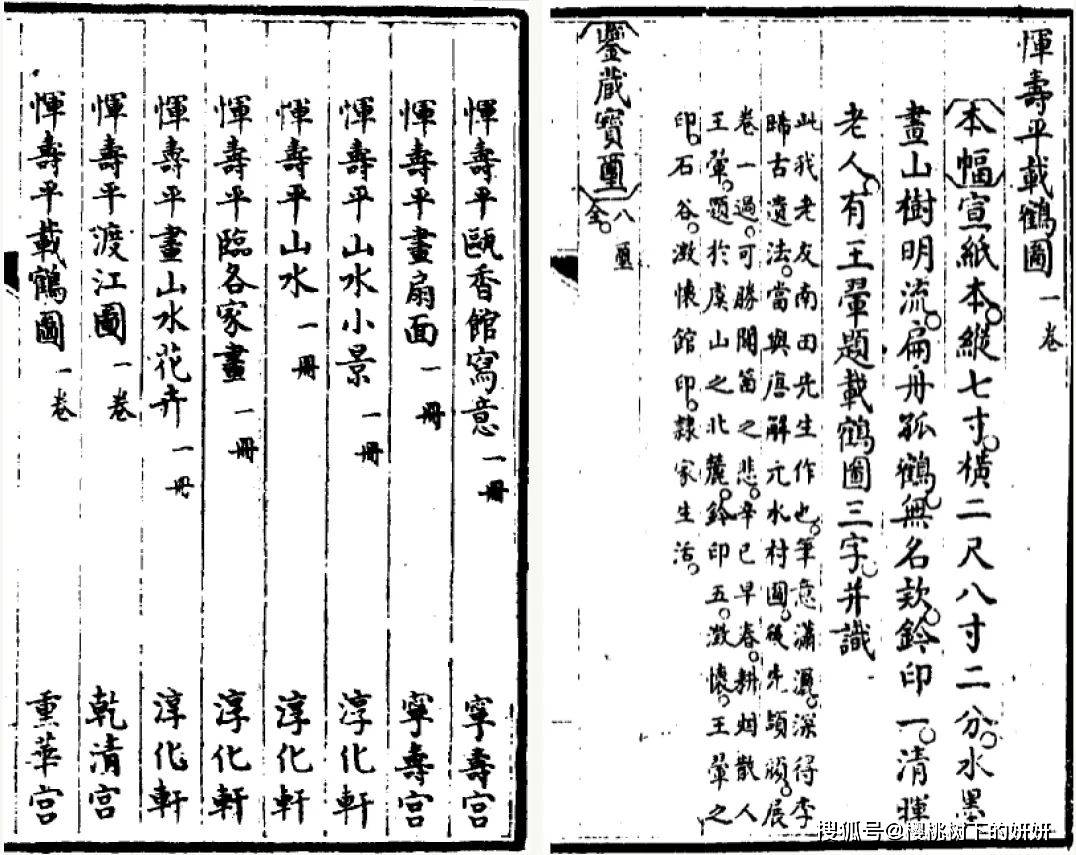 惲壽平載鶴圖一卷
本幅宣紙本。縱七寸。橫二尺八寸二分。水墨
畫山樹明流。扁舟孤鶴。無名款。鈐印一。清暉
老人。有王翬題載鶴圖三字。并識
此我老友南田先生作也。筆意瀟灑。深得李
晞古遺法。當與唐解元水村圖。後先頡頏。展
卷一過。可勝聞笛之悲。辛巳早春。耕烟散人
王翬。題於虞山之北麓。鈐印五。澂懷。王翬之
印。石谷。澂懷館印。隸家生活。
鑒藏寶璽八璽全。
惲壽平甌香館寫意一冊 寧壽宮
惲壽平畫扇面一冊 寧壽宮
惲壽平山水小景一冊 淳化軒
惲壽平山水一冊 淳化軒
惲壽平臨各家畫一冊 淳化軒
惲壽平畫山水花卉一冊 淳化軒
惲壽平渡江圖一卷 乾清宮
惲壽平載鶴圖一卷 重華宮
搜狐号@樱桃树下的妍妍